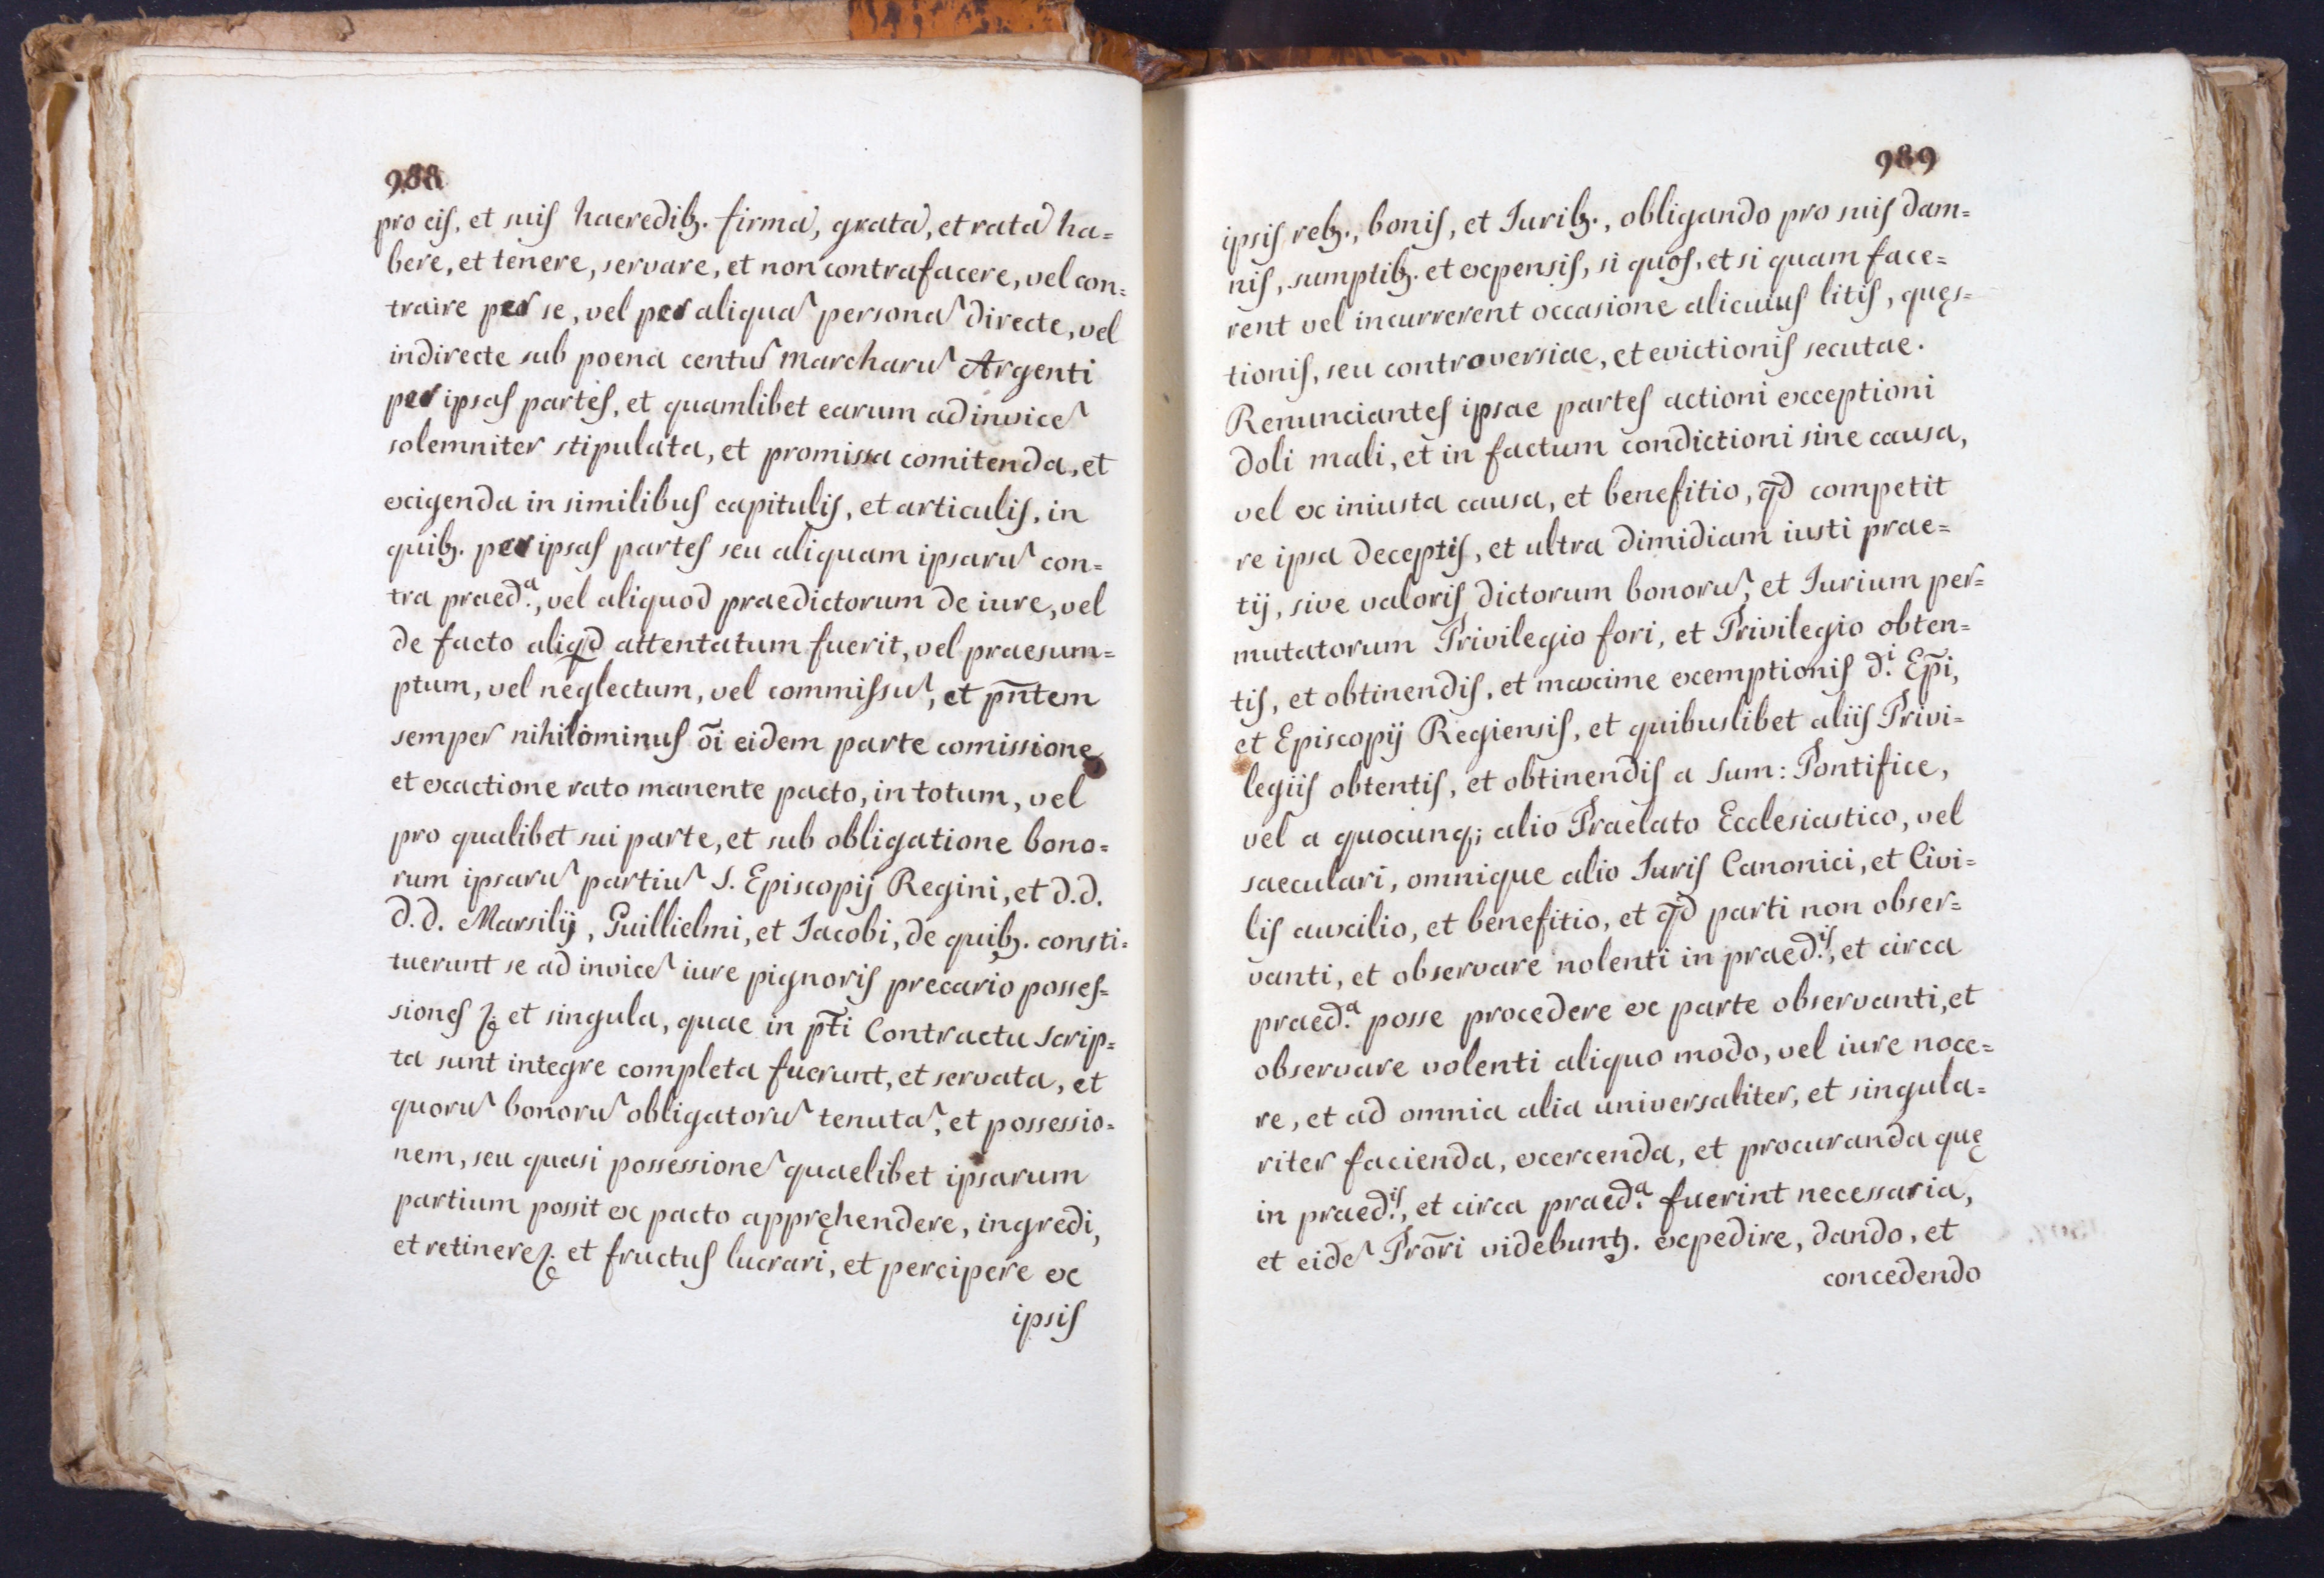 988
pro eis, et suis haeredibꝫ. firma, grata, et rata ha=
bere, et tenere, servare, et non contrafacere, vel con=
traire per se, vel per aliqua᷃ persona᷃ directe, vel
indirecte sub poena centu᷃ Marcharu᷃ Argenti
per ipsas partes, et quamlibet earum ad invice᷃
solemniter stipulata, et promissa comitenda, et
exigenda in similibus capitulis, et articulis, in
quibꝫ. per ipsas partes seu aliquam ipsaru᷃ con=
tra praed.ᵃ, vel aliquod praedictorum de iure, vel
de facto aliqd attentatum fuerit, vel praesum=
ptum, vel neglectum, vel commissu᷃, et pn̄tem
semper nihilominus ōi eidem parte comissione
et exactione rato manente pacto, in totum, vel
pro qualibet sui parte, et sub obligatione bono=
rum ipsaru᷃ partiu᷃ S. Episcopij Regini, et d.d.
d.d. Marsilij, Guillielmi, et Iacobi, de quibꝫ. consti=
tuerunt se ad invice᷃ iure pignoris precario posses=
siones et singula, quae in pt̄i Contractu scrip=
ta sunt integre completa fuerunt, et servata, et
quoru᷃ bonoru᷃ obligatoru᷃ tenuta᷃, et possessio=
nem, seu quasi possessione᷃ quaelibet ipsarum
partium possit ex pacto appręhendere, ingredi,
et retinere et fructus lucrari, et percipere ex
ipsis
989
ipsis rebꝫ., bonis, et Iuribꝫ., obligando pro suis dam=
nis, sumptibꝫ. et expensis, si quos, et si quam face=
rent vel incurrerent occasione alicuius litis, quęs=
tionis, seu controversiae, et evictionis secutae.
Renunciantes ipsae partes actioni exceptioni
doli mali, et in factum condictioni sine causa,
vel ex iniusta causa, et benefitio, qd̄ competit
re ipsa deceptis, et ultra dimidiam iusti prae=
tij, sive valoris dictorum bonoru᷃, et Iurium per=
mutatorum Privilegio fori, et Privilegio obten=
tis, et obtinendis, et maxime exemptionis d.ⁱ Ep̄i,
et Episcopij Regiensis, et quibuslibet aliis Privi=
legiis obtentis, et obtinendis a Sum: Pontifice,
vel a quocunq; alio Praelato Ecclesiastico, vel
saeculari, omnique alio Iuris Canonici, et Civi=
lis auxilio, et benefitio, et qd̄ parti non obser=
vanti, et observare nolenti in praed.ⁱˢ, et circa
praed.ᵃ posse procedere ex parte observanti, et
observare volenti aliquo modo, vel iure noce=
re, et ad omnia alia universaliter, et singula=
riter facienda, exercenda, et procuranda quę
in praed.ⁱˢ, et circa praed.ᵃ fuerint necessaria,
et eide᷃ Prōri videbuntꝫ. expedire, dando, et
concedendo